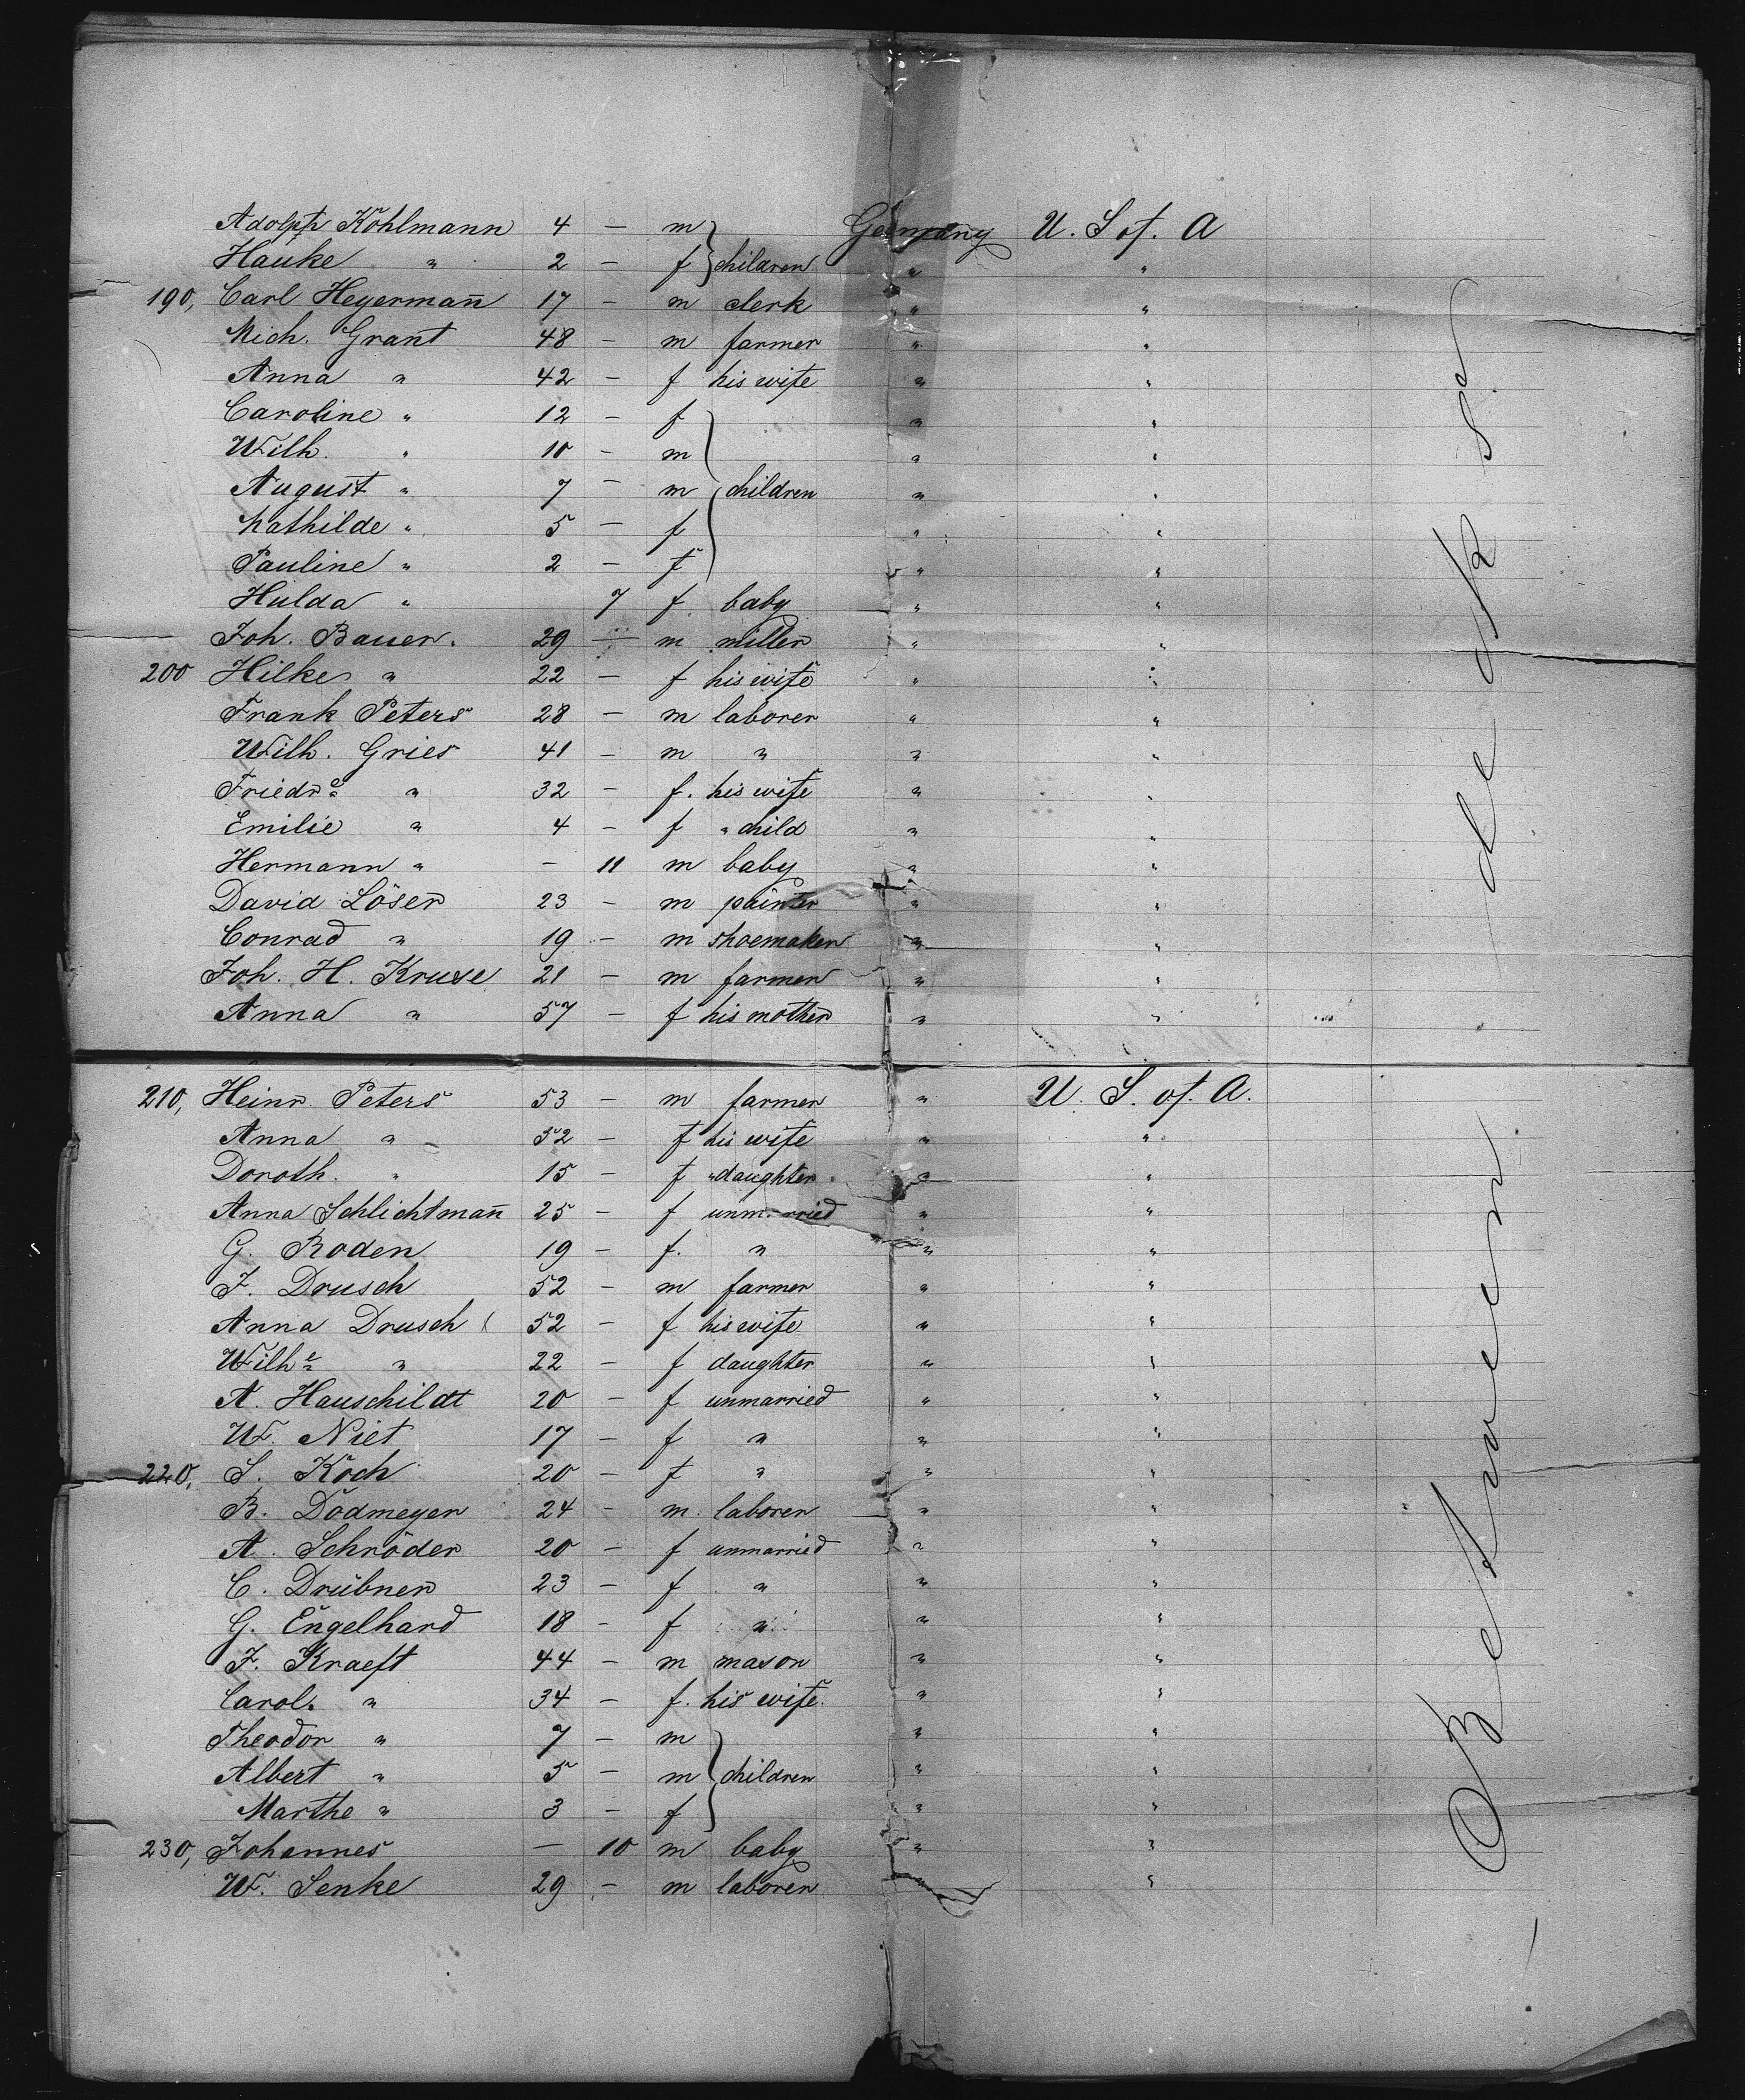 Adolph Köhlmann 4 — m } Germany U. S. of. A
Hauke " 2 — f } children " "
190, Carl Heyermañ 17 — m clerk " "
Mich. Grant 48 — m farmer " "
Anna " 42 — f his wife " "
Caroline " 12 — f " "
Wilh. " 10 — m " "
August " 7 — m } children " "
Mathilde " 5 — f " "
Pauline " 2 — f " "
Hulda " 7 f baby " "
Joh. Bauer. 29 — m miller " "
200 Hilke " 22 — f his wife " "
Frank Peters 28 — m laborer " "
Wilh. Gries 41 — m " " "
Friedr.e " 32 — f. his wife " "
Emilie " 4 — f " child " "
Hermann " — 11 m baby " "
David Löser 23 — m painter " "
Conrad " 19 — m shoemaker " "
Joh. H. Kruse 21 — m farmer " "
Anna " 57 — f his mother " "
210, Heinr. Peters 53 — m farmer " U. S. of. A.
Anna " 52 — f his wife " "
Doroth. " 15 — f " daughter " "
Anna Schlichtmañ 25 — f unmarried " "
G. Roden 19 — f. " " "
J. Drusch 52 — m farmer " "
Anna Drusch 52 — f his wife " "
Wilh.e " 22 — f daughter " "
A. Hauschildt 20 — f unmarried " "
W. Niet 17 — f " " "
220, S. Koch 20 — f " " "
B. Dodmeyer 24 — m. laborer " "
A. Schröder 20 — f unmarried " "
C. Drübner 23 — f " " "
G. Engelhard 18 — f " " "
F. Kraeft 44 — m mason " "
Carol. " 34 — f. his wife. " "
Theodor " 7 — m " "
Albert " 5 — m } children " "
Marthe " 3 — f " "
230, Johannes — 10 m baby " "
W. Senke 29 — m laborer " "
Between decks